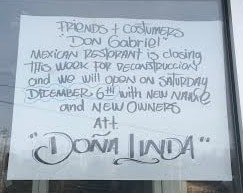 FRIENDS + COSTUMERS
"Don Gabriel"
MEXICAN RESTORANT is closing
THIS WEEK FOR RECONSTRUCCION
and we will open on SATURDAY
DECEMBER 6TH with NEW NAME
and NEW OWNERS
Att.
"DOÑA LINDA"